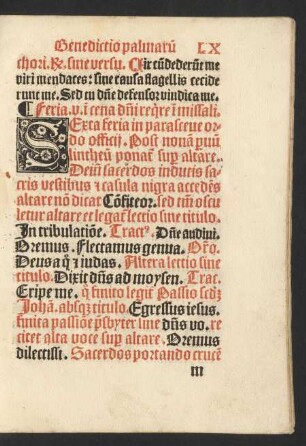 Benedictio palmarū LX
chori. ⁊c. sine versu. Cir cūdederūt me
viri mendaces: sine causa flagellis cecide
runt me. Sed tu dn̄e defensor vindica me.
¶ Feria. v. ī cena dn̄i req̄re ī missali.
SExta feria in parasceue or
do officij. Post nonā p̄uū
lintheū ponat̄ sup̄ altare.
Deiū sacerdos indutus sa
cris vestibus ⁊ casula nigra accedēs
altare nō dicat Cōfiteor. sed tm̄ oscu
letur altare et legat̄ lectio sine titulo.
In tribulatiōe. Tractꝰ. Dn̄e audiui.
Oremus. Flectamus genua. Or̄o.
Deus a q̄ ⁊ iudas. Altera lectio sine
titulo. Dixit dn̄s ad moysen. Trac.
Eripe me. q̄ finito legit̄ Passio scd̄ꝫ
Johā. absqꝫ titulo. Egressus iesus.
finita passiōe p̄sbyter sine dn̄s vo. re
citet alta voce sup̄ altare. Oremus
dilectissi. Sacerdos portando crucē
m